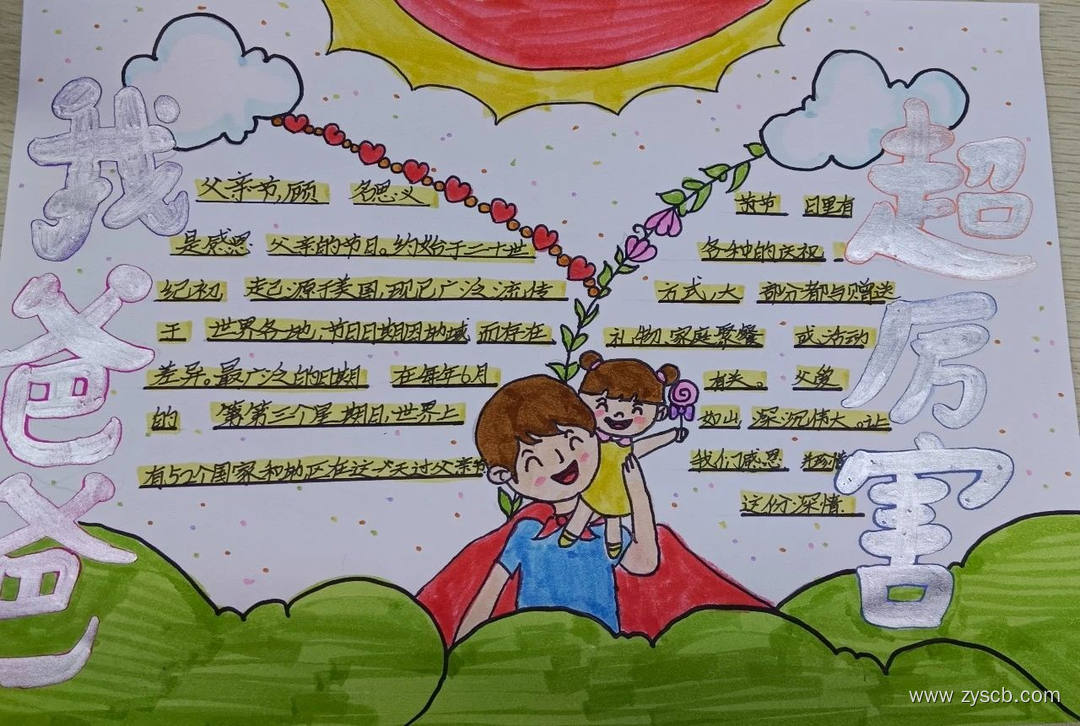 我爸爸
超厉害
父亲节,顾 名思义
是感恩 父亲的节日。约始于二十世
纪初 起源于美国,现已广泛流传
于 世界各地,节日日期因地域 而存在
差异。最广泛的日期 在每年6月
的 第第三个星期日,世界上
有52个国家和地区在这一天过父亲节
节日里有
各种的庆祝
方式,大 部分都与赠送
礼物、家庭聚餐 或活动
有关。 父爱
如山,深沉伟大。让
我们感恩
这份深情
www.zyscb.com